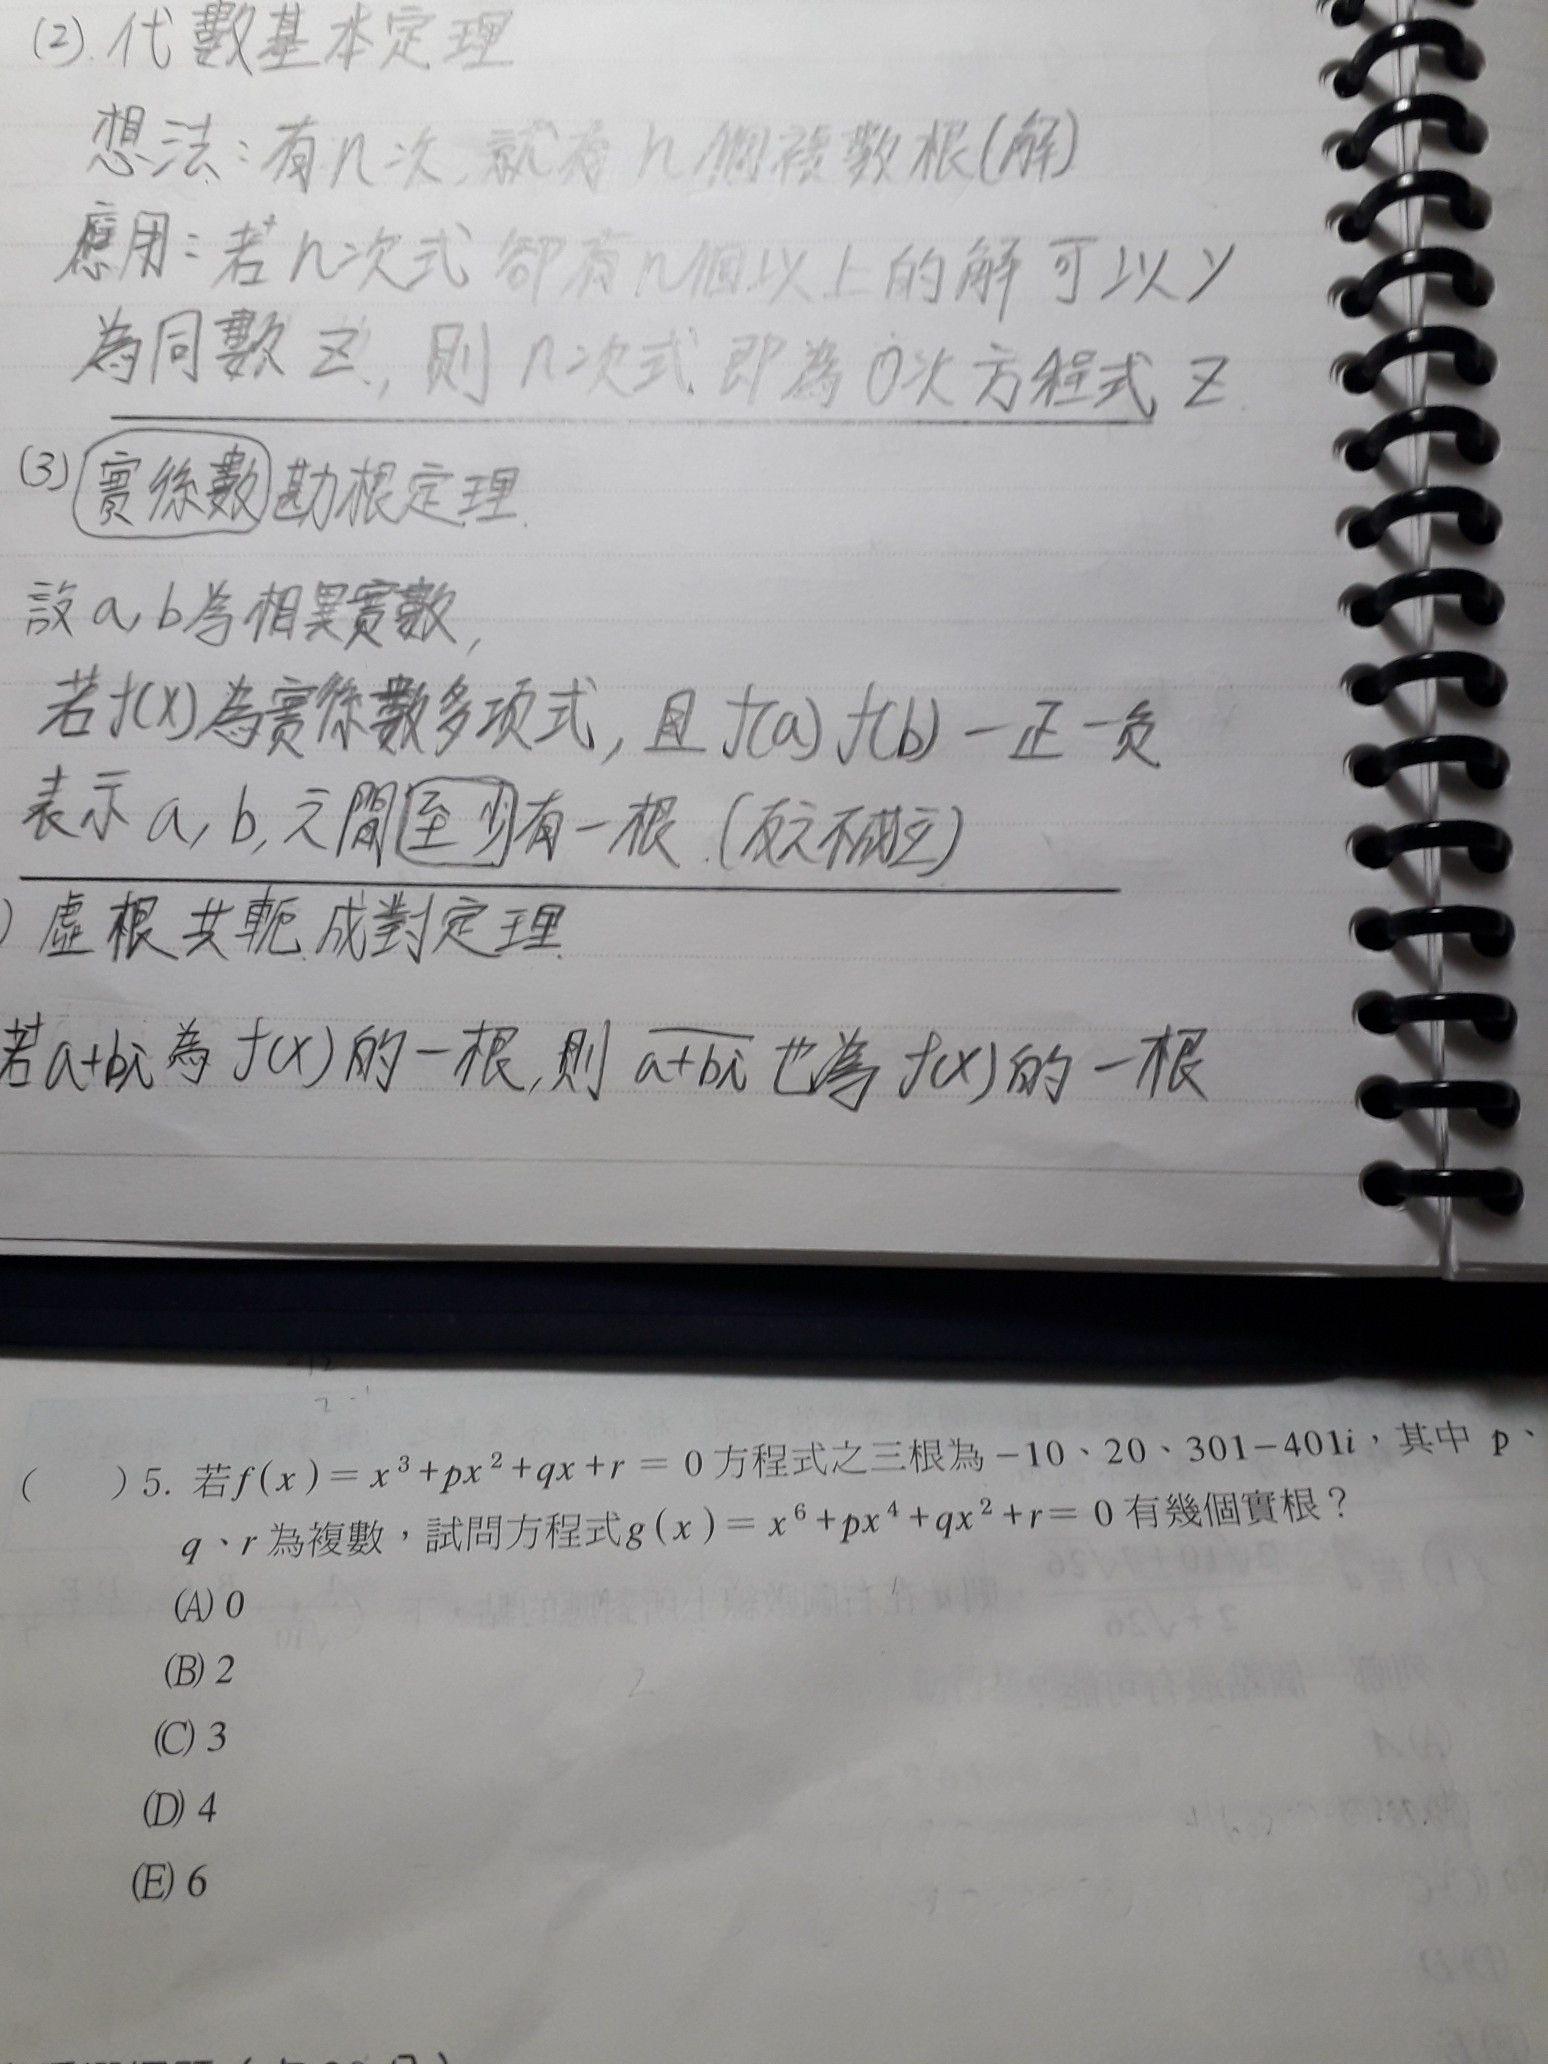 (2). 代數基本定理
想法：有n次，就有n個複數根(解)
應用：若n次式 卻有n個以上的解 可以y
為同數 Z, 則 n次式 即為 0次方程式 Z.
(3) 實係數 勘根定理.
設 a, b為相異實數,
若f(x)為實係數多項式, 且 f(a) f(b) 一正一負
表示 a, b, 之間 至少 有一根. (反之不成立)
) 虛根共軛成對定理.
若a+bi 為 f(x) 的一根, 則 a+bi 也為 f(x) 的一根
( ) 5. 若f(x) = x³+px²+qx+r = 0 方程式之三根為 −10、20、301−401i，其中 p、
q、r 為複數，試問方程式g(x) = x⁶+px⁴+qx²+r= 0 有幾個實根？
(A) 0
(B) 2
(C) 3
(D) 4
(E) 6